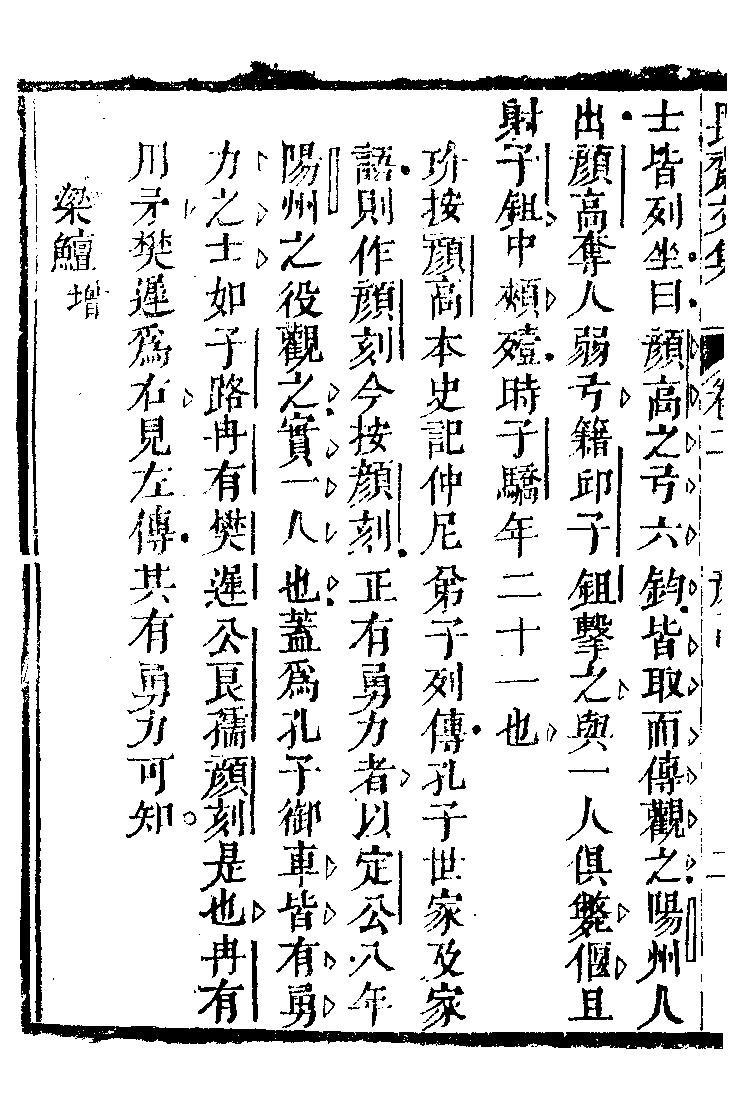 士皆列坐曰顏高之弓六鈞皆取而傳觀之陽州人
出顏高奪人弱弓籍邱子鉏擊之與一人俱斃偃且
射子鉏中頰殪時子驕年二十一也
玠按顏高本史記仲尼弟子列傳孔子世家及家
語則作顏刻今按顏刻正有勇力者以定公八年
陽州之役觀之實一人也蓋爲孔子御車皆有勇
力之士如子路冉有樊遲公良孺顏刻是也冉有
用矛樊遲爲右見左傳其有勇力可知
梁鱣增